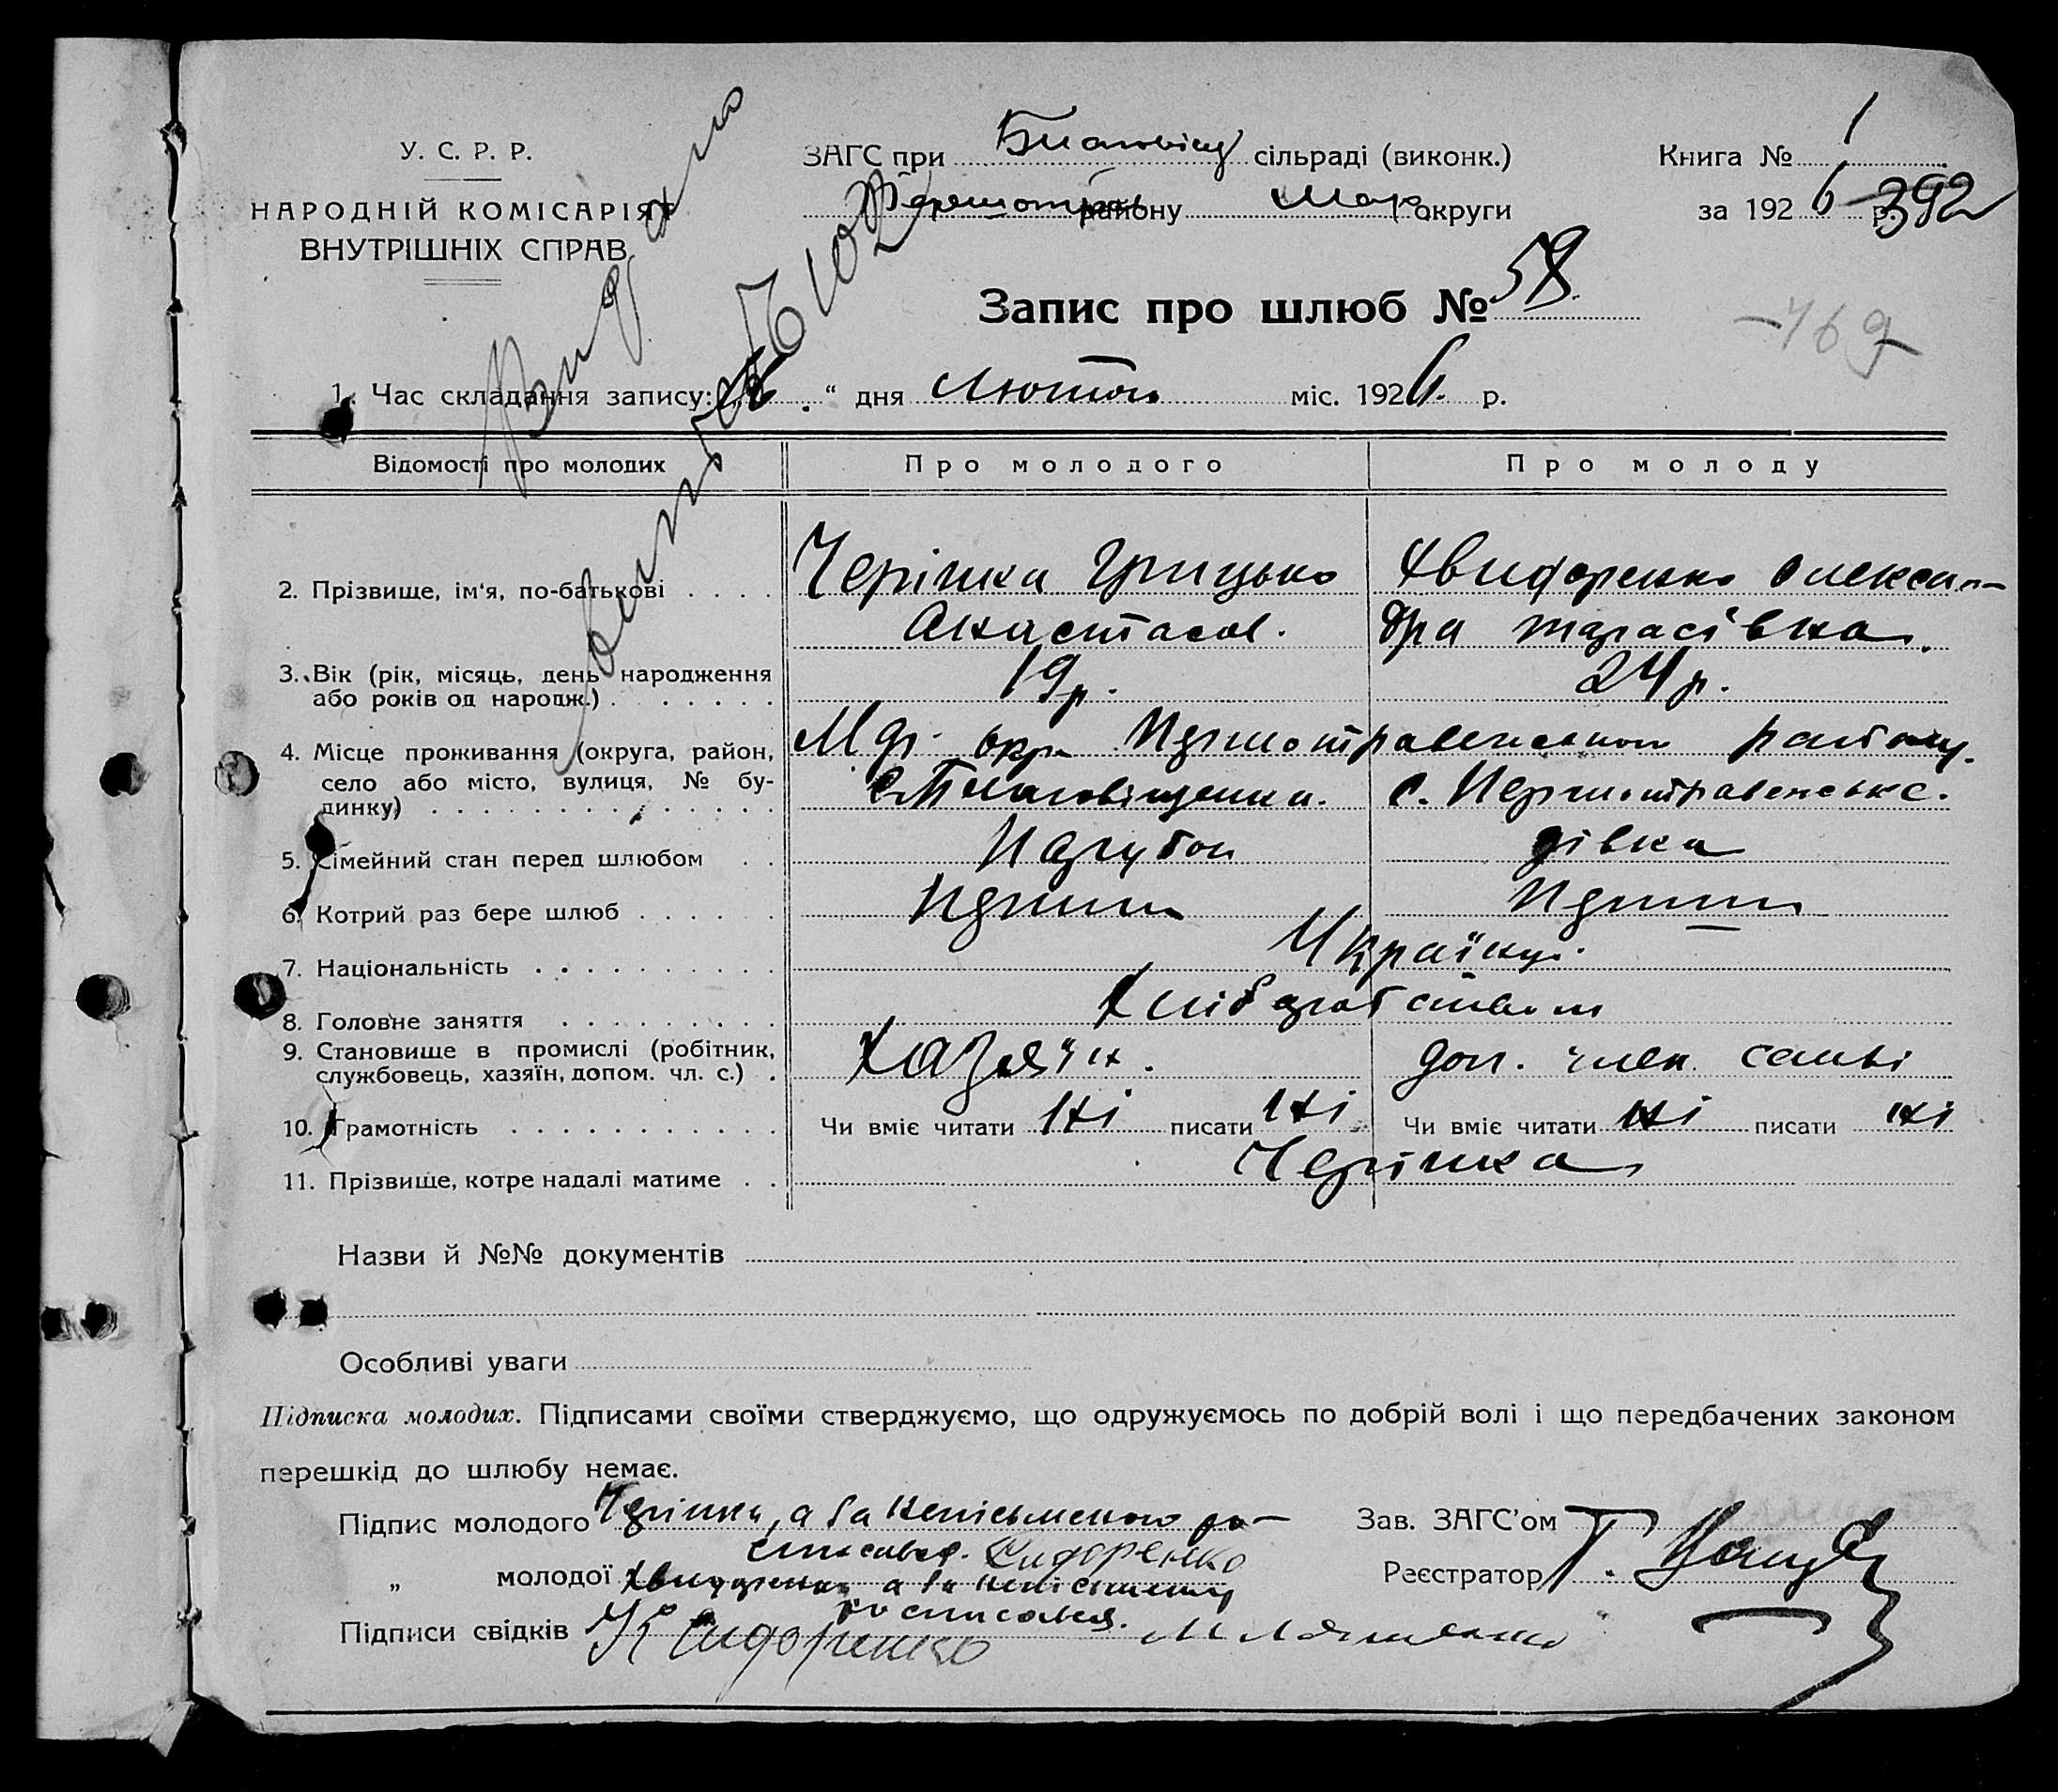 У. С. Р. Р.
НАРОДНІЙ КОМІСАРІЯТ
ВНУТРІШНІХ СПРАВ
ЗАГС при сільраді (виконк.)
району Мар. округи
Книга № 1
за 1926 р. 392
Запис про шлюб № 58
469
1. Час складання запису: „ “ дня Лютого міс. 1926 р.
Видано
Відомості про молодих
Про молодого
Про молоду
2. Прізвище, ім'я, по-батькові . . . .
Черішка Грицько
Анастасов.
Хвидоренко Олексан-
дра тарасівна.
3. Вік (рік, місяць, день народження
або років од народж.) . . . . . .
19 р.
24 р.
4. Місце проживання (округа, район,
село або місто, вулиця, № бу-
динку) . . . . . . . . . . . . .
Мар. окр. Першотравенського району.
с. Благовіщенка.
с. Першотравенське.
5. Сімейний стан перед шлюбом . .
Парубок
дівка
6. Котрий раз бере шлюб . . . . . .
Перший
Перший
7. Національність . . . . . . . . . .
Українці.
8. Головне заняття . . . . . . . . .
Хліборобством
9. Становище в промислі (робітник,
службовець, хазяїн, допом. чл. с.) .
Хазяїн.
доп. член. семьї
10. Грамотність . . . . . . . . . . .
Чи вміє читати ні писати ні
Чи вміє читати ні писати ні
11. Прізвище, котре надалі матиме . .
Черішка
Назви й №№ документів
Особливі уваги
Підписка молодих. Підписами своїми стверджуємо, що одружуємось по добрій волі і що передбачених законом
перешкід до шлюбу немає.
Підпис молодого Черішка, а за неписьменого ро-
списався. Сидоренко
„ молодої Хвидоренко а за неписьмену
росписався.
Підписи свідків К Сидоренко
Зав. ЗАГС'ом
Реєстратор